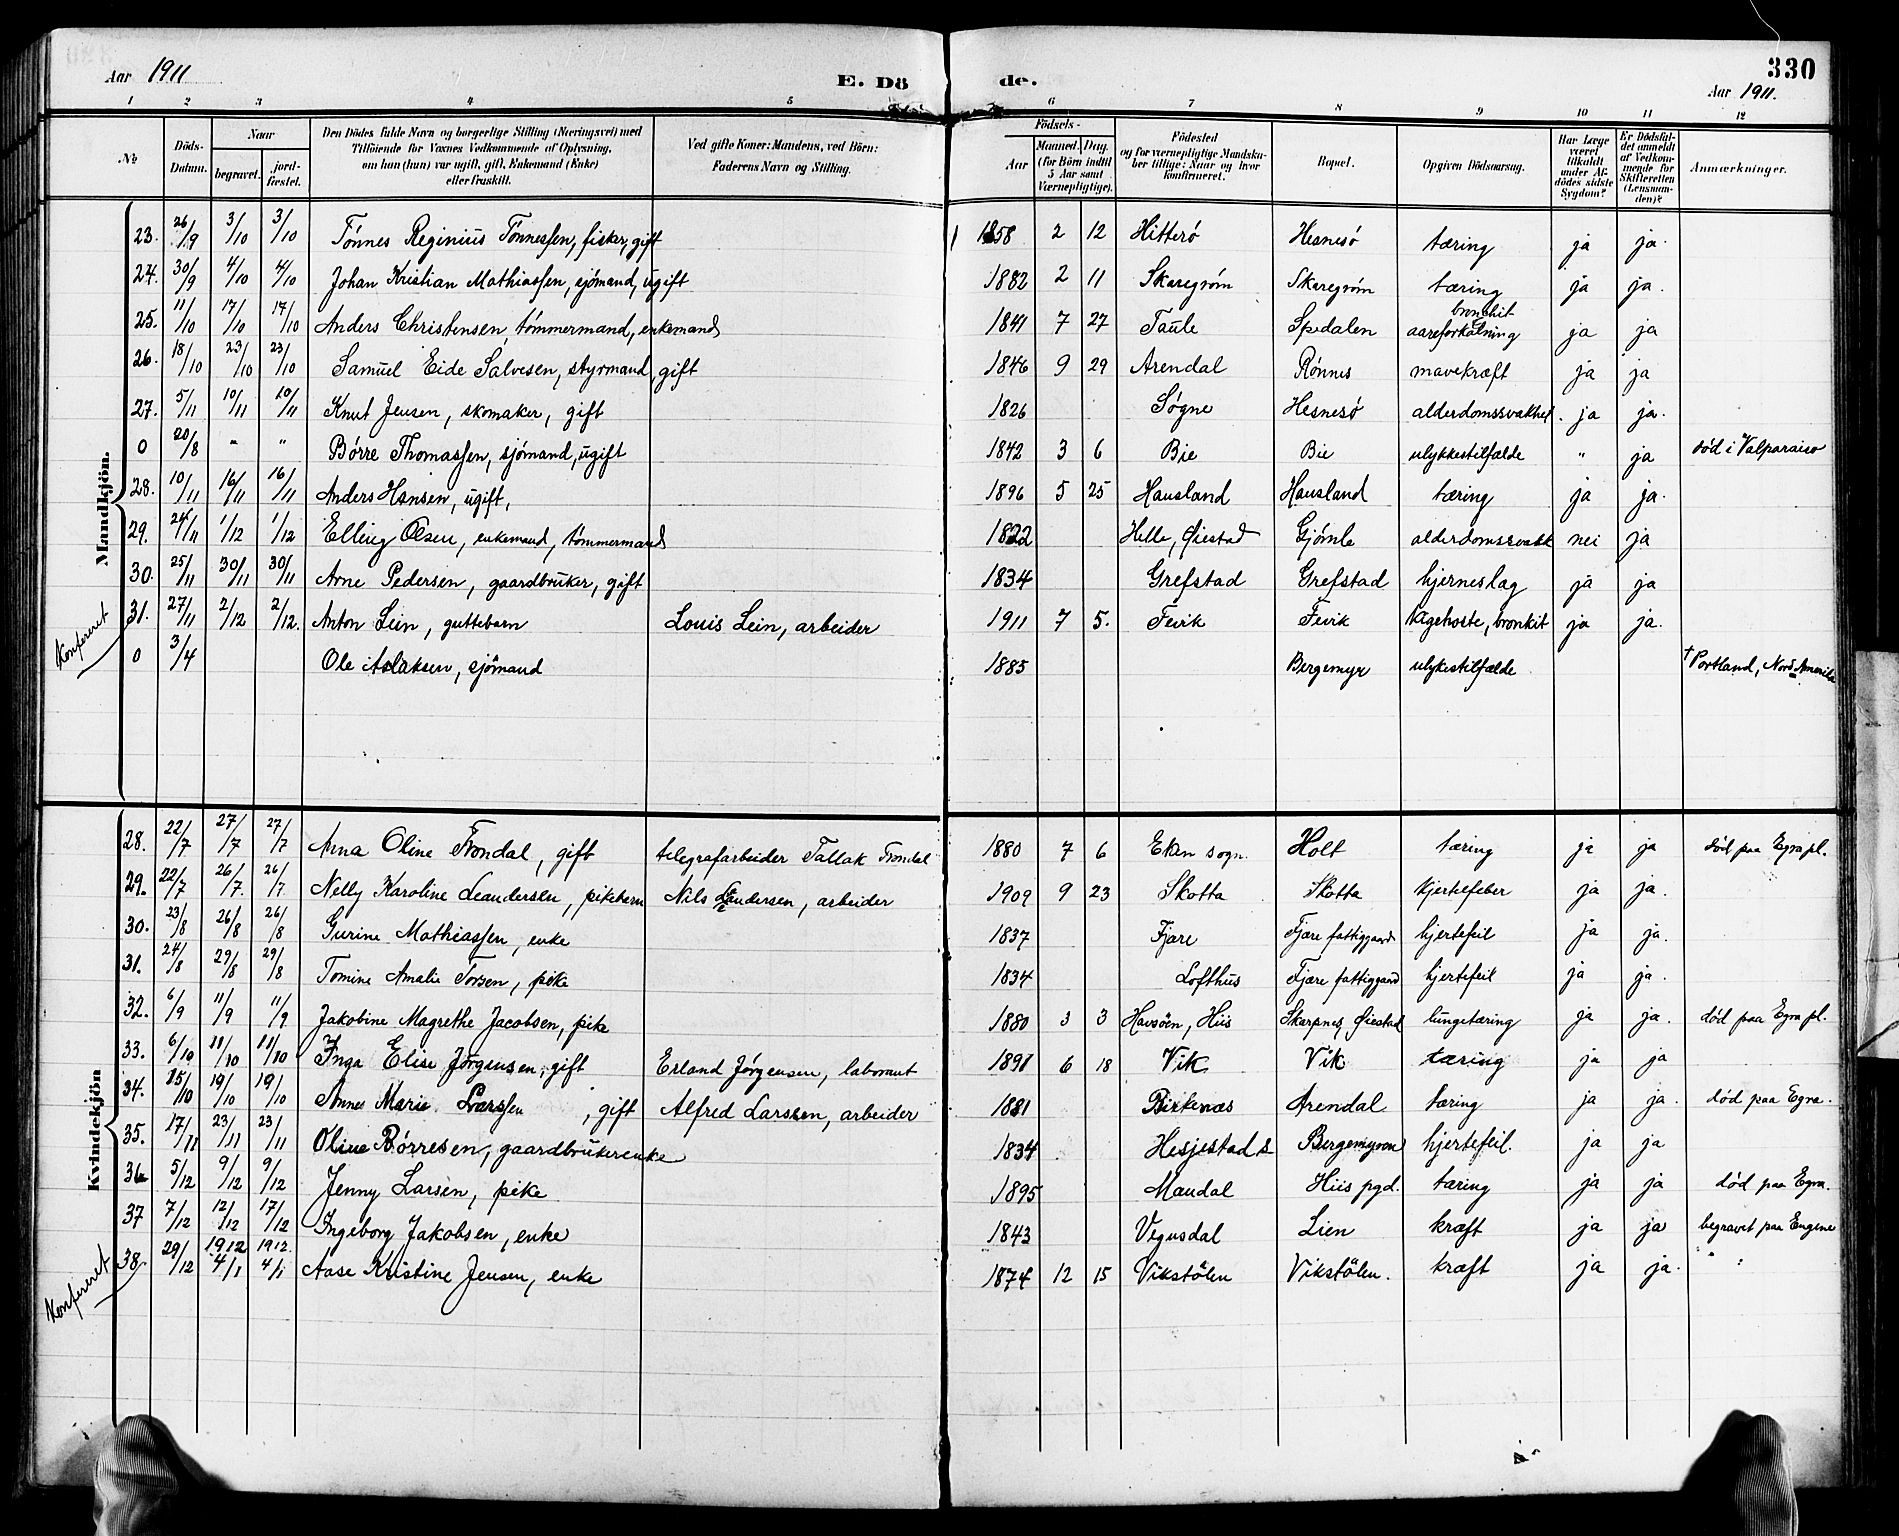 330
Aar 1911 E. Dö de. Aar 1911.
1 2 3 4 5 6 7 8 9 10 11 12
No
Döds-Datum.
Naar
begravet.
jordfæstet.
Den Dödes fulde Navn og borgerlige Stilling (Næringsvei) med
Tilföiende for Voxnes Vedkommende af Oplysning,
om han (hun) var ugift, gift, Enkemand (Enke)
eller fraskilt.
Ved gifte Koner: Mandens, ved Börn:
Faderens Navn og Stilling.
Födsels-
Aar
Maaned. Dag.
(for Börn indtil 5 Aar samt Værnepligtige).
Födested
og for værnepligtige Mandskaber tillige: Naar og hvor konfirmeret.
Bopæl.
Opgiven Dödsaarsag.
Har Læge været tilkaldt under Afdödes sidste Sygdom?
Er Dödsfaldet anmeldt af Vedkommende for Skifteretten (Lensmanden)?
Anmærkninger.
Mandkjön.
23. 26/9 3/10 3/10 Tönnes Reginius Tönnessen, fisker, gift 1858 2 12 Hitterö Hesnesö tæring ja ja.
24. 30/9 4/10 4/10 Johan Kristian Mathiassen, sjömand, ugift 1882 2 11 Skaregröm Skaregröm tæring ja ja.
25. 11/10 17/10 17/10 Anders Christensen, tömmermand, enkemand 1841 7 27 Taule Spedalen bronkit aareforkalkning ja ja
26. 18/10 23/10 23/10 Samuel Eide Salvesen, styrmand, gift 1846 9 29 Arendal Rönnes mavekræft ja ja
27. 5/11 10/11 10/11 Knut Jensen, skomaker, gift 1826 Søgne Hesnesö alderdomssvakhet. ja ja.
0 20/8 " " Börre Thomassen, sjömand, ugift 1842 3 6 Bie Bie ulykkestilfælde " ja död i Valparaiso
28. 10/11 16/11 16/11 Anders Hansen, ugift, 1896 5 25 Hausland Hausland tæring ja ja.
29. 24/11 1/12 1/12 Elling Olsen, enkemand, tömmermand 1822 Helle, Øiestad Gjömle alderdomssvakh nei ja
30. 25/11 30/11 30/11 Arne Pedersen, gaardbruker, gift 1834 Grefstad Grefstad hjerneslag ja ja
31. 27/11 2/12 2/12. Anton Lein, guttebarn Louis Lein, arbeider 1911 7 5. Fevik Fevik kighoste, bronkit ja ja.
Konfereret
0 3/4 Ole Aslaksen, sjömand 1885 Bergemyr ulykestilfælde † Portland, Nord Amerika
Kvindekjön
28. 22/7 27/7 27/7 Anna Oline Trondal, gift telegrafarbeider Tallak Trondal 1880 7 6 Eken sogn. Holt tæring ja ja död paa Egra pl.
29. 22/7 26/7 26/7 Nelly Karoline Leandersen, pikebarn Nils Leandersen, arbeider 1909 9 23 Skotta Skotta kjertelfeber ja ja.
30. 23/8 26/8 26/8 Gurine Mathiassen, enke 1837 Fjære Fjære fattiggaard hjertefeil ja ja.
31. 24/8 29/8 29/8 Tomine Amalie Torsen, pike 1834 Lofthus Fjære fattiggaard hjertefeil ja ja.
32. 6/9 11/9 11/9 Jakobine Magrethe Jacobsen, pike 1880 3 3 Havsöen, Hiis Skarpnes, Øiestad lungetæring ja ja. död paa Egra pl.
33. 6/10 11/10 11/10 Inga Elise Jörgensen, gift Erland Jörgensen, laborant 1891 6 18 Vik Vik tæring ja ja
34. 15/10 19/10 19/10 Annes Marie Larssen, gift Alfred Larssen, arbeider 1881 Birkenæs Arendal tæring ja ja. död paa Egra.
35. 17/11 23/11 23/11 Oline Börresen, gaardbrukerenke 1834 Hesjestad Bergemyren hjertefeil. ja ja
36 5/12 9/12 9/12 Jenny Larsen, pike 1895 Mandal Hiis pgd. tæring ja ja död paa Egra.
37 7/12 12/12 17/12 Ingeborg Jakobsen, enke 1843 Vegusdal Lien kræft ja ja begravet paa Eugene
38. 29/12 1912 4/1 1912. 4/1 Aase Kristine Jensen, enke 1874 12 15 Vikstölen Vikstölen. kræft ja ja. " "
Konfereret